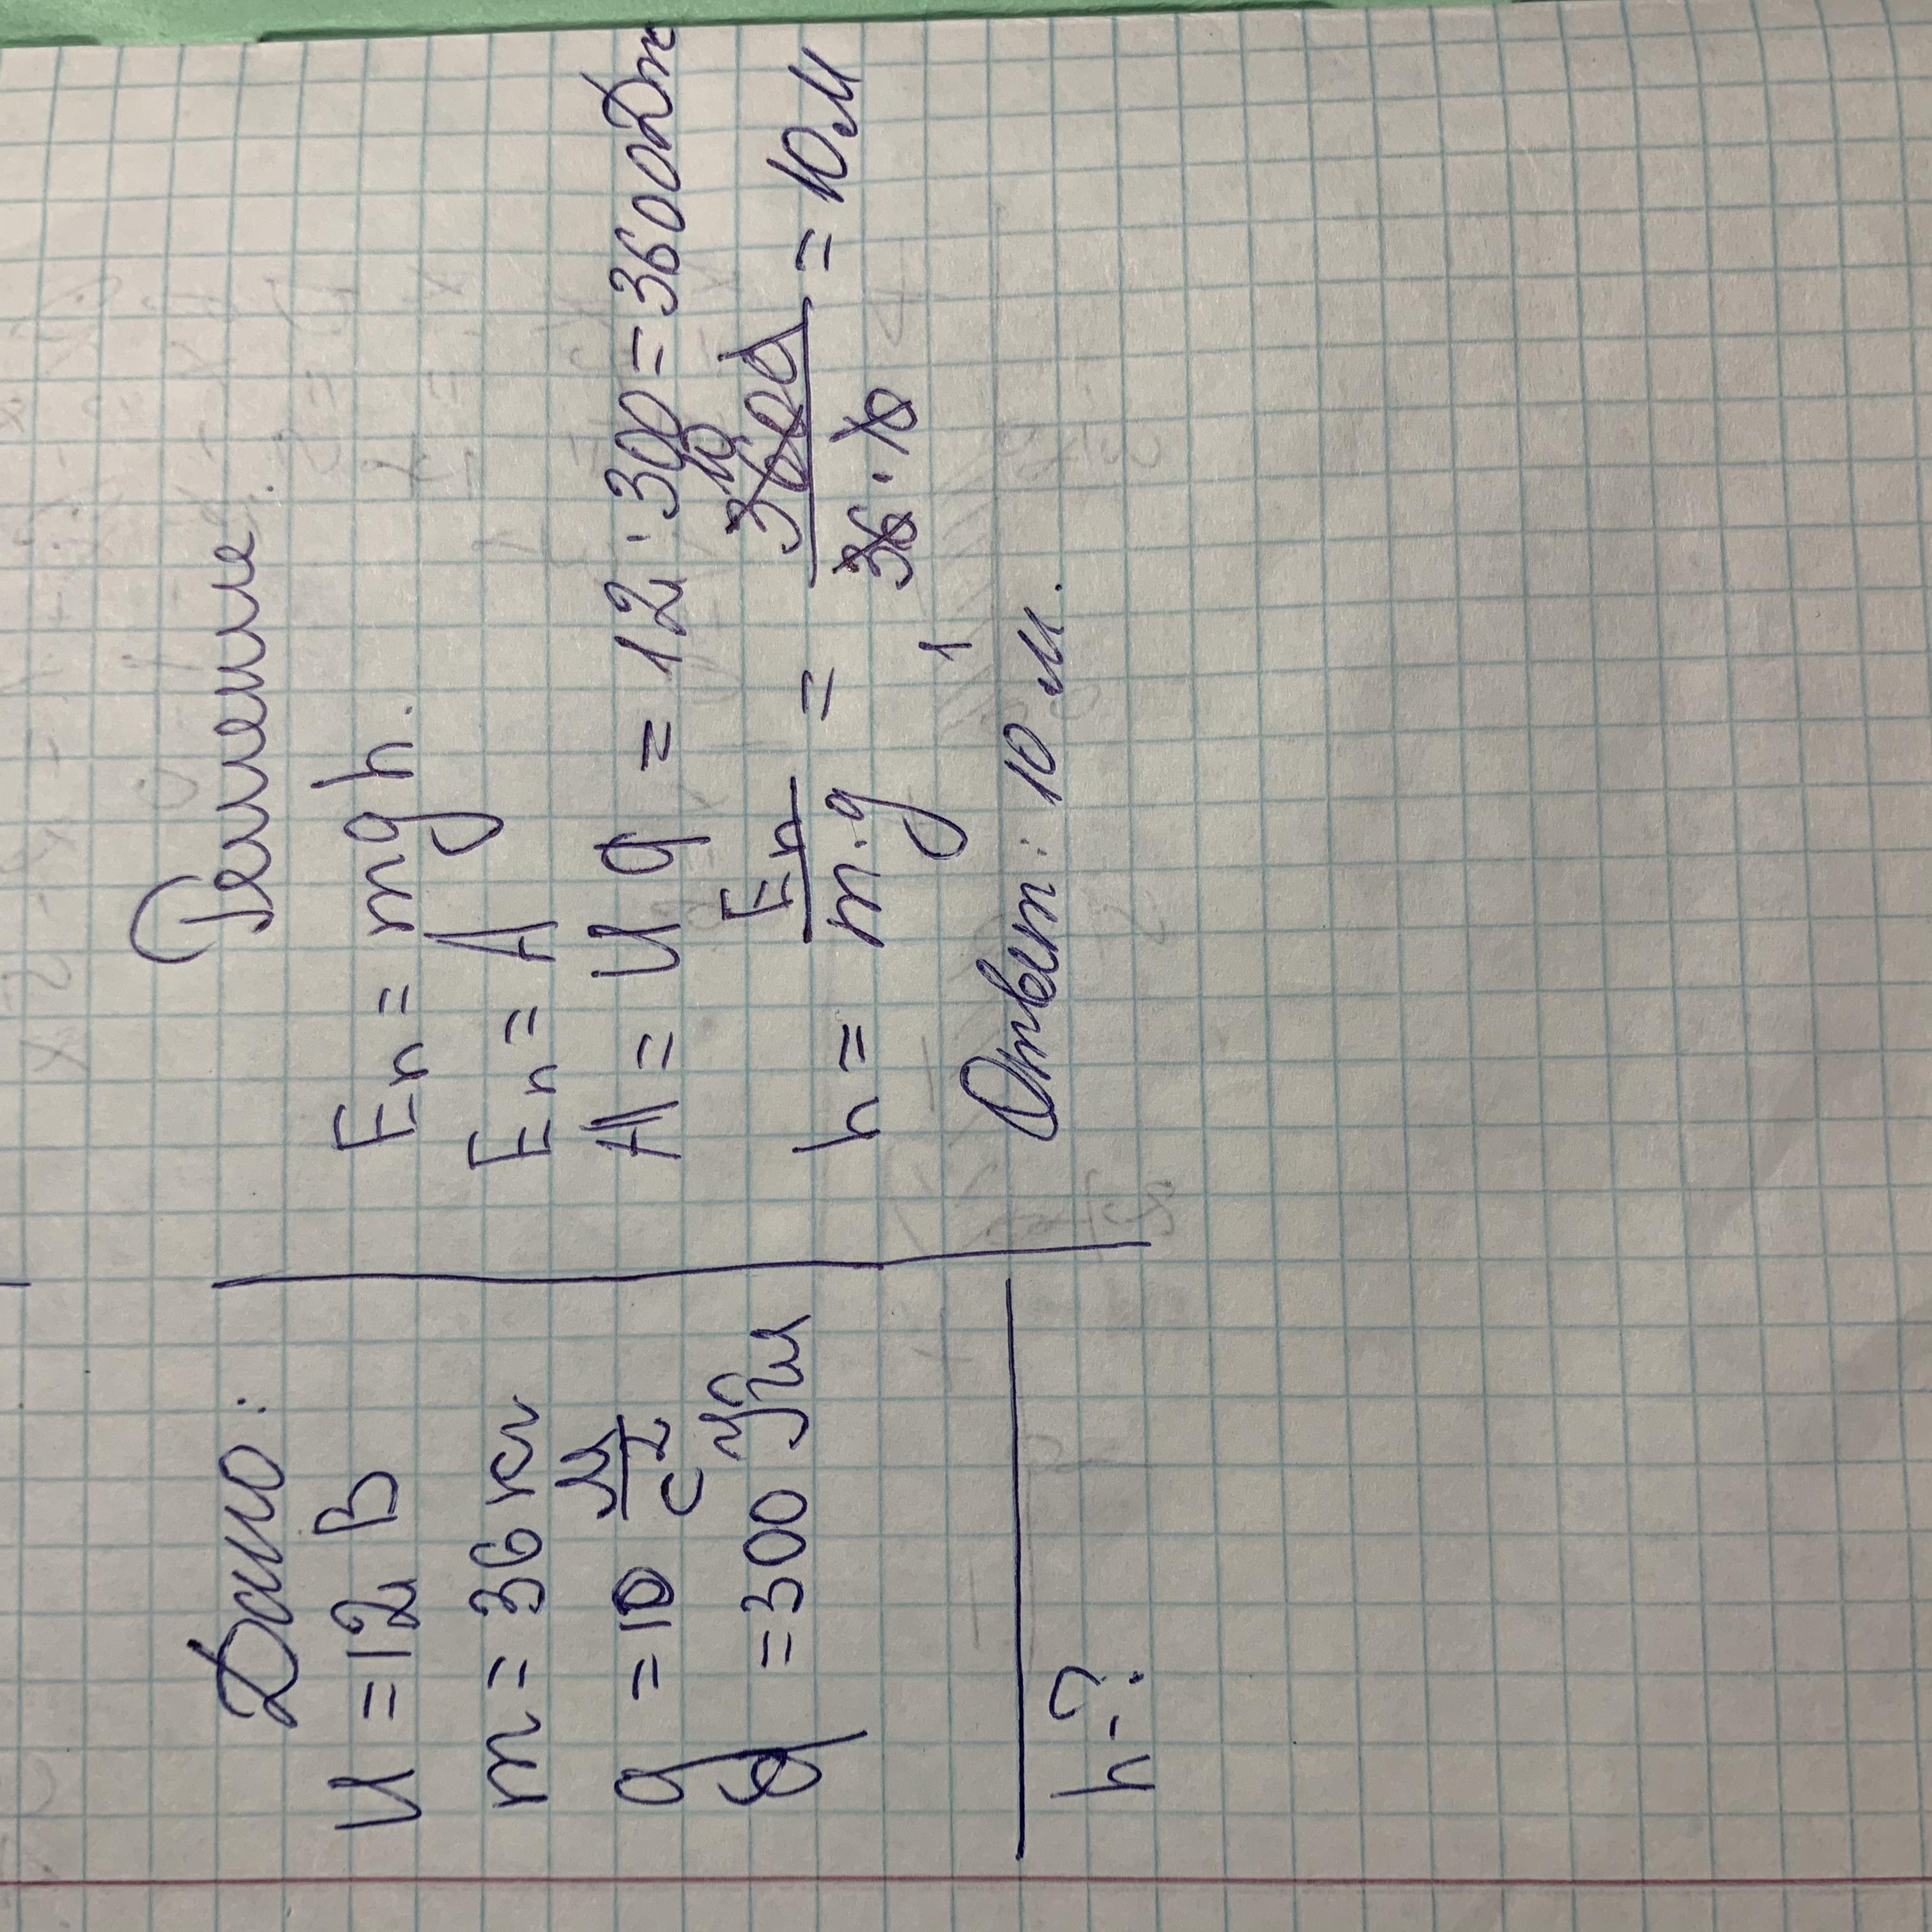 Дано:
U = 12 В
m = 36 кг
g = 10 м/с²
q = 300 Кл
h - ?
Решение.
Eп = mgh.
Eп = A
A = U q = 12 · 300 = 3600 Дж
h = Eп / m · g = 3600 / 36 · 10 = 10 м
10
1
Ответ: 10 м.